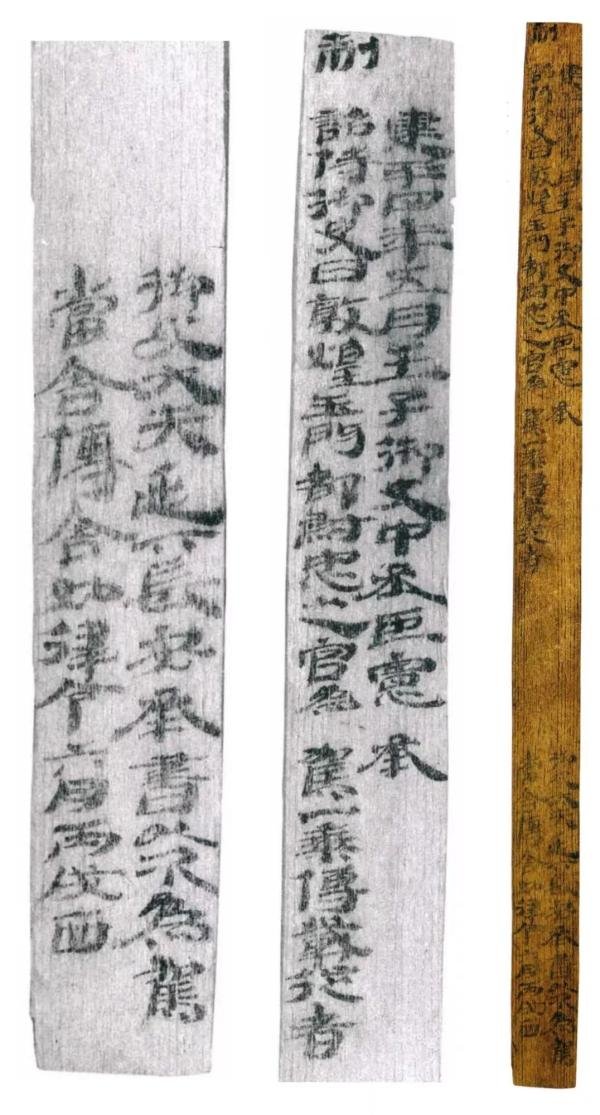 建平四年五月壬子御史中丞臣憲 承
制詔侍御史曰敦煌玉門都尉忠之官為 駕一乘傳載從者
御史大夫延下長安承書以次為駕
當舍傳舍如律令六月丙戌西
建平四年五月壬子御史中丞臣憲 承
制詔侍御史曰敦煌玉門都尉忠之官為 駕一乘傳載從者
御史大夫延下長安承書以次為駕
當舍傳舍如律令六月丙戌西